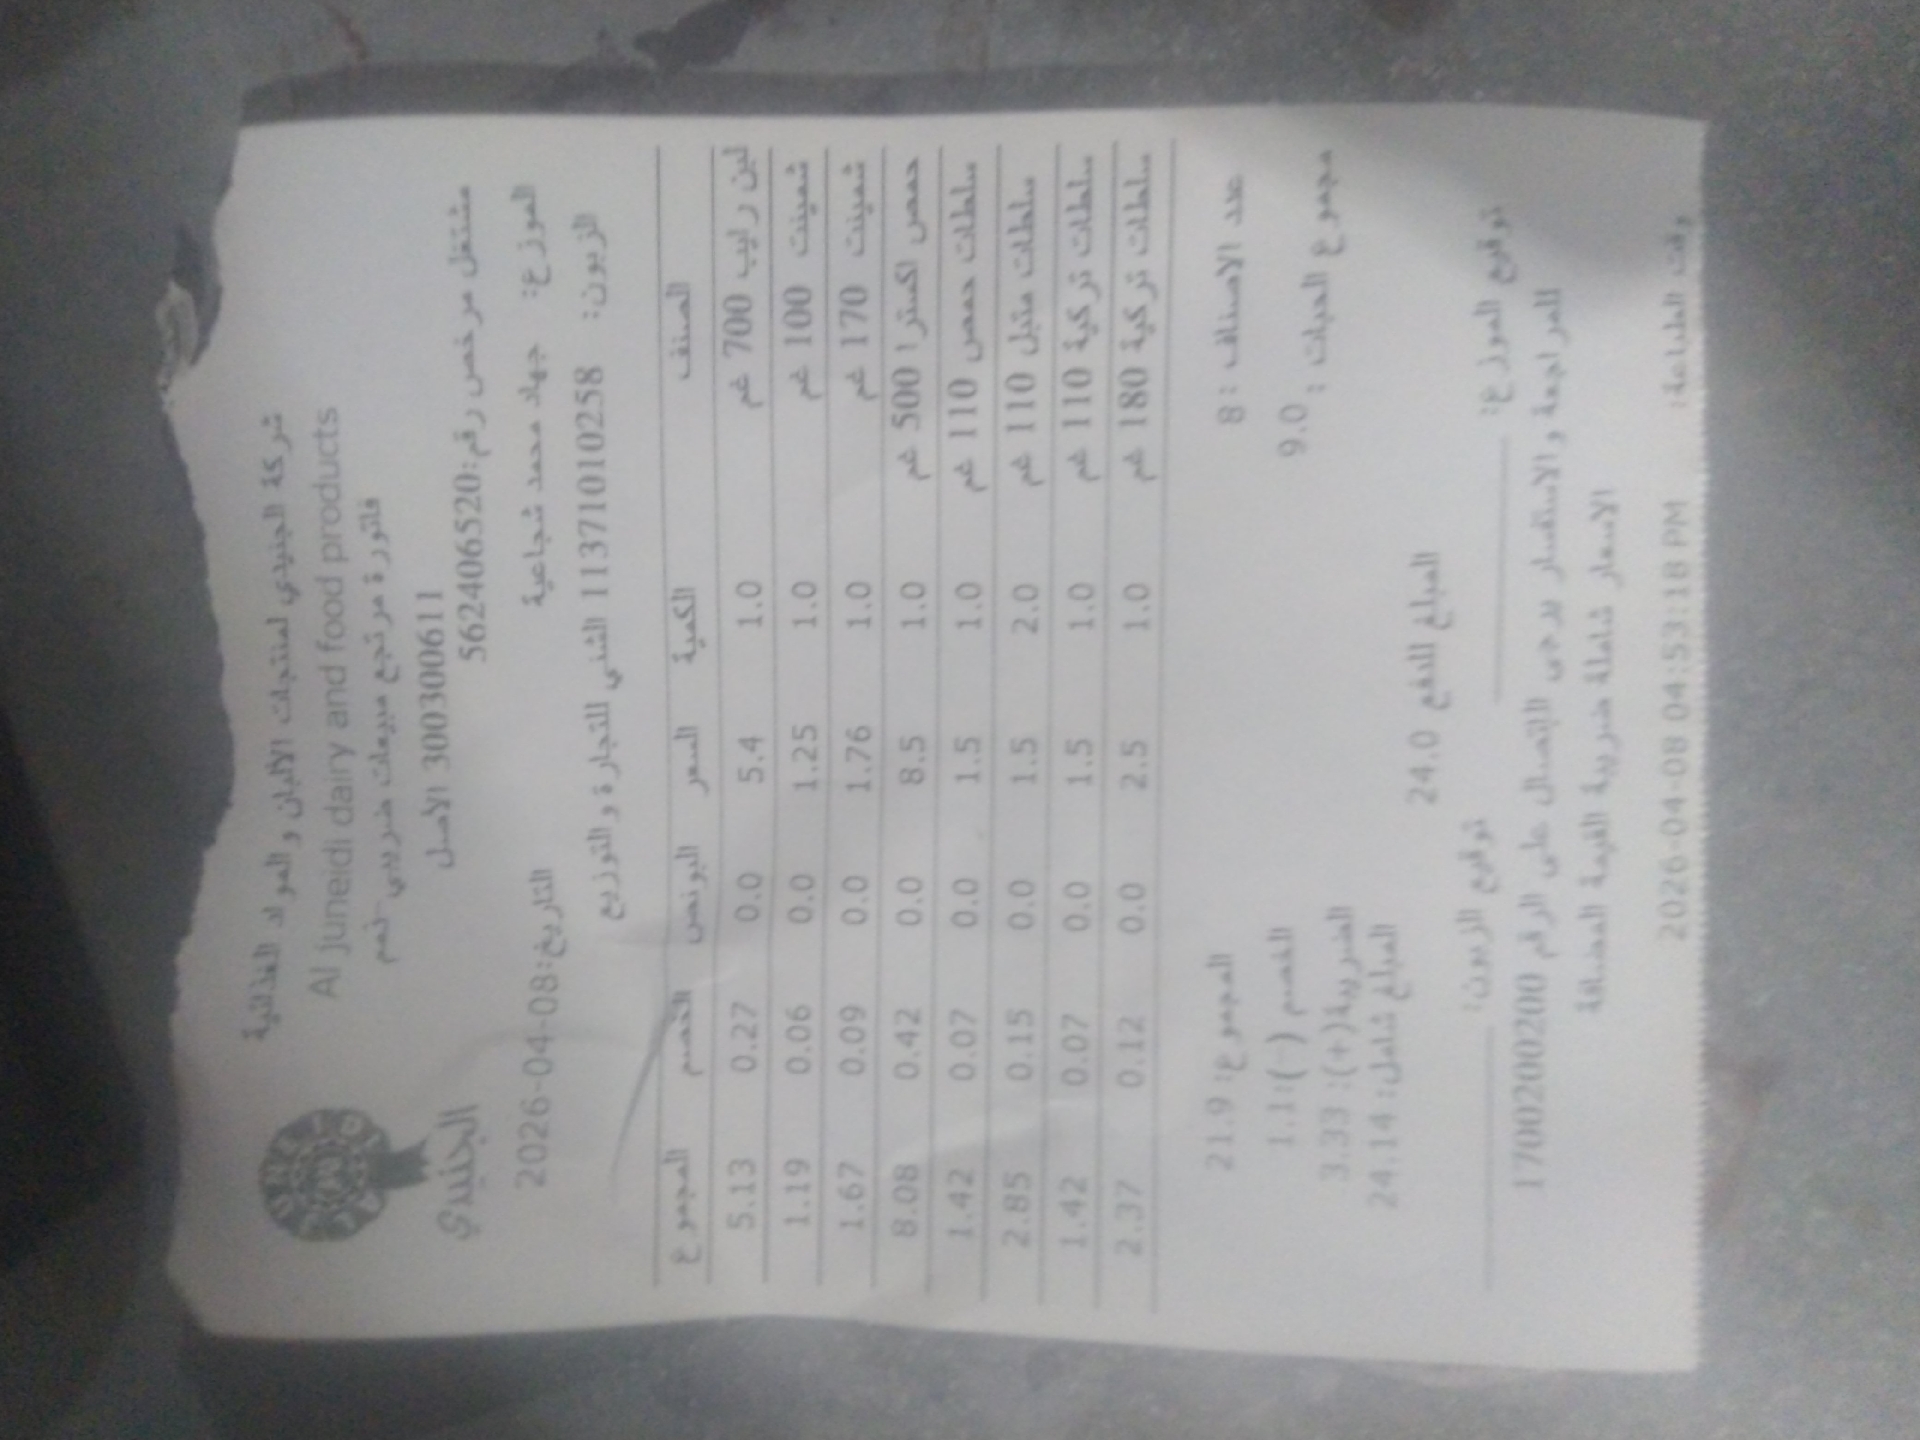 شركة الجنيدي لمنتجات الالبان و المواد الغذائية
Al Juneidi dairy and food products
فاتورة مرتجع مبيعات ضريبي-لحم
300300611 الاصل
مشتغل مرخص رقم:562406520
الجنيدي
الموزع: جهاد محمد شجاعية
التاريخ:2026-04-08
الزبون: 1137101010258 الشني للتجارة و التوزيع
الصنف الكمية السعر البونص الخصم المجموع
لبن رايب 700 غم 1.0 5.4 0.0 0.27 5.13
شمينت 100 غم 1.0 1.25 0.0 0.06 1.19
شمينت 170 غم 1.0 1.76 0.0 0.09 1.67
حمص اكسترا 500 غم 1.0 8.5 0.0 0.42 8.08
سلطات حمص 110 غم 1.0 1.5 0.0 0.07 1.42
سلطات متبل 110 غم 2.0 1.5 0.0 0.15 2.85
سلطات تركية 110 غم 1.0 1.5 0.0 0.07 1.42
سلطات تركية 180 غم 1.0 2.5 0.0 0.12 2.37
عدد الاصناف : 8
المجموع: 21.9
مجموع الحبات : 9.0
الخصم (-):1.1
الضريبة(+): 3.33
المبلغ شامل: 24.14
المبلغ للدفع 24.0
توقيع الموزع:
توقيع الزبون:
للمراجعة و الاستفسار يرجى الإتصال على الرقم 1700200200
الاسعار شاملة ضريبة القيمة المضافة
وقت الطباعة: 2026-04-08 04:53:18 PM